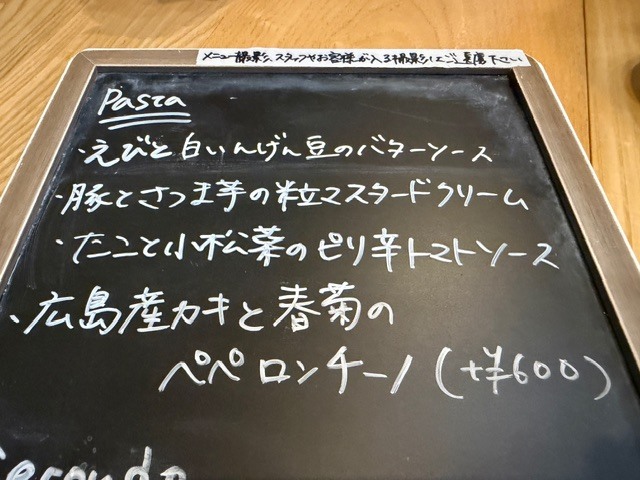 メニュー撮影、スタッフやお客様が入る撮影はご遠慮下さい
Pasta
・えびと白いんげん豆のバターソース
・豚とさつま芋の粒マスタードクリーム
・たこと小松菜のピリ辛トマトソース
・広島産カキと春菊の
ペペロンチーノ(+¥600)
Secondo